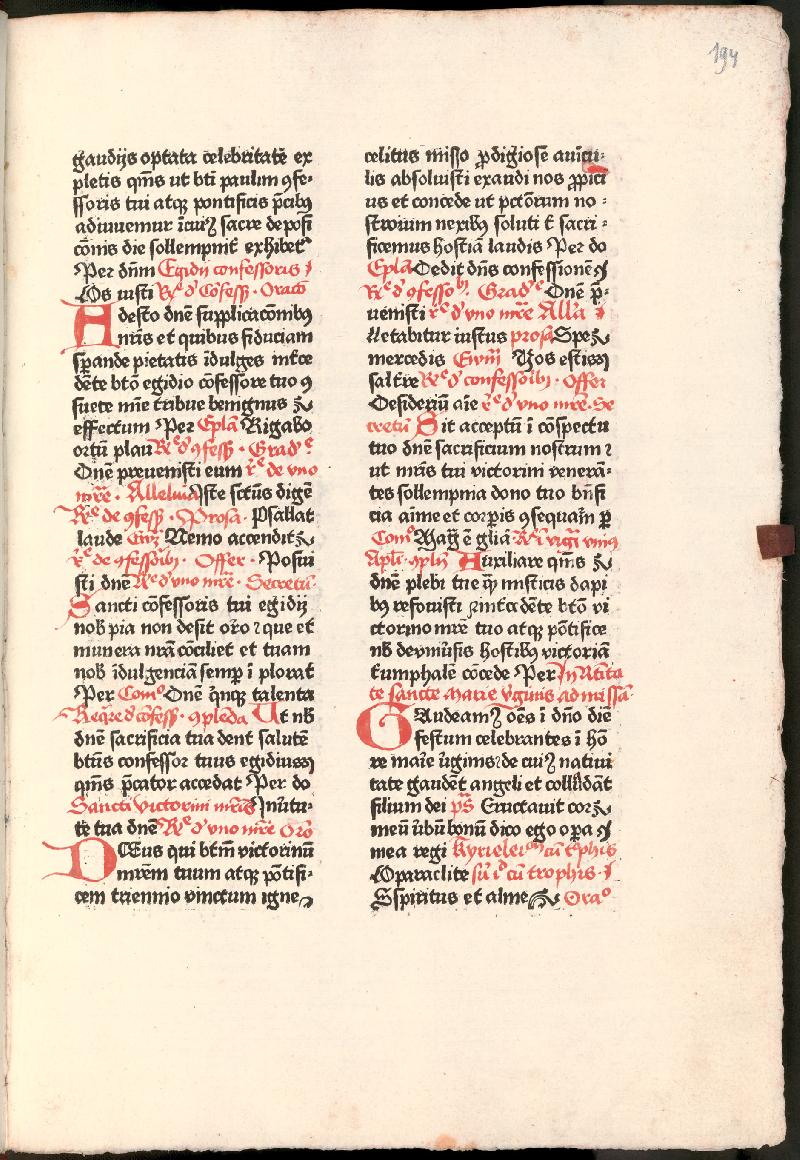 194
gaudijs optata celebritatē ex
pletis qm̄s ut bt̄i paulini ꝯfe-
ssoris tui atqꝫ pontificis p̄cibꝰ
adiuuemur ī cuiꝰ sacre deposi
cōnis die sollempnit̄ exhibet̉
Per dn̄m Egidij confessoris
Os iusti Re d' Cōfess. Oracō
Adesto dn̄e supplicacōnibꝰ
nr̄is et quibus fiduciam
sperande pietatis īdulges int̉ce
dēte bt̄o egidio cōfessore tuo ꝯ
suete mīe tribue benignus
effectum Per Epl̄a Rigabo
ortū plan Re d' ꝯfess. Grade
Dn̄e preuenisti eum re de vno
mr̄e. Alleluia Iste sct̄us digē
Re de ꝯfess. Prosa. Psallat
laude Ew̄ Nemo accendit
re de ꝯfessoribꝰ. Offer. Posui
sti dn̄e Re d' vno mr̄e. Secretū
Sancti cōfessoris tui egidij
nob pia non desit or̄o ꝛ que et
munera nr̄a cōciliet et tuam
nob īdulgenciā semꝑ īplorat
Per Como Dn̄e q̄nqꝫ talenta
Reqr̄e d' cōfess. ꝯplēda Ut nb̄
dn̄e sacrificia tua dent salutē
bt̄us confessor tuus egidius
qm̄s p̄cator accedat Per do
Sancti victorini mr̄is In v̄tu-
te tua dn̄e Re d' vno mr̄e Or̄o
DEus qui bt̄m victorinū
mr̄em tuum atqꝫ pōtifi-
cem triennio vinctum igne
celitus misso ꝓdigiose a uīcu-
lis absoluisti exaudi nos ꝓpici
us et concede ut pct̄orum no-
strorum nexibꝰ soluti t̄ sacri-
ficemus hostiā laudis Per do
Epl̄a Dedit dn̄s confessionē
Re d' ꝯfessoibꝰ. Grade Dn̄e p̄-
uenisti re d' vno mr̄e All̄a
Letabitur iustus prosa Spe
mercedis Ewm̄ Vos estis
sal tr̄e Re d' confessoibꝰ. Offer
Desideriū aīe re d' vno mr̄e. Se
cretū Sit acceptū ī cōspectu
tuo dn̄e sacrificium nostrum ꝛ
ut mr̄is tui victorini venerā-
tes sollempnia dono tuo bn̄fi
cia aīme et corꝑis ꝯsequam̄ ꝑ
Como Magᷓ ē glīa Re ī vigᷓ vniꝰ
Apl̄i. ꝯplꝫ Auxiliare qm̄s
dn̄e plebi tue qᷓ misticis dapi
bꝰ refouisti ꝛ int̉cedēte bt̄o vi
ctorino mr̄e tuo atqꝫ pōtifice
nb̄ deuinctis hostibꝰ victoriā
t̉umphale cōcede Per In Natiui
te sancte Marie v̉ginis ad missā
GAudeamꝰ oēs ī dn̄o diē
festum celebrantes ī hō
re marie v̉ginis de cuiꝰ natiui
tate gaudēt angeli et collaudāt
filium dei p̄s Eructauit cor
meū v̉bū bonū dico ego opera
mea regi Kyrieleison cū t̉phis
O paraclite sū c cū trophis.
Sspiritus et alme Orao